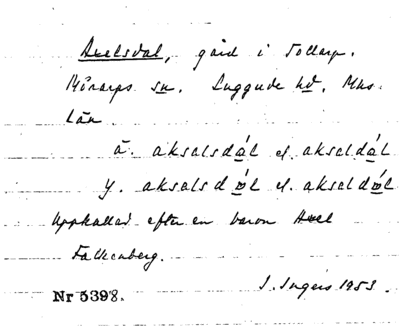 Axelsdal, gård i Tollarp.
Mörarps sn. Luggude hd. Mhs.
Län.
ä. aksəlsdál el. aksəldál
y. aksəlsdɷ́l el. aksəldɷ́l
Uppkallad efter en baron Axel
Falkenberg.
Nr 5398. I. Ingers 1953.